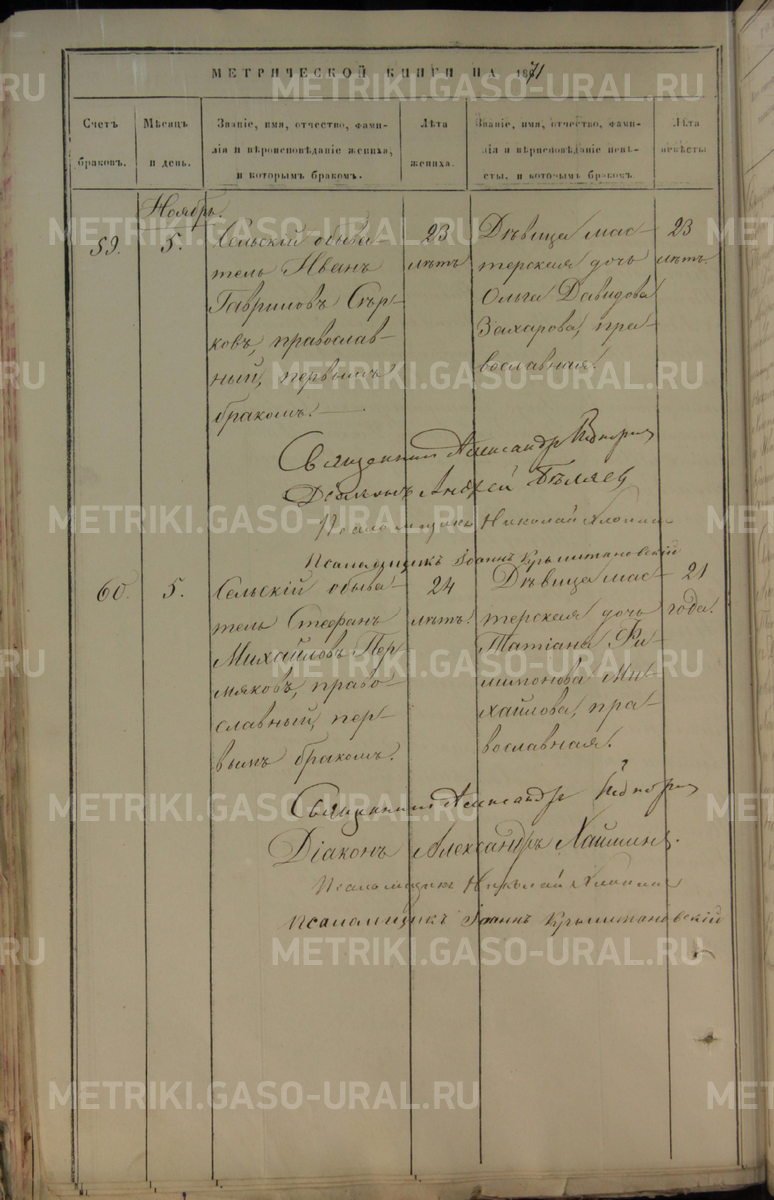 МЕТРИЧЕСКОЙ КНИГИ НА 1871
Счетъ браковъ.
Мѣсяцъ и день.
Званіе, имя, отчество, фами-
лія и вѣроисповѣданіе жениха,
и которымъ бракомъ.
Лѣта
жениха.
Званіе, имя, отчество, фами-
лія и вѣроисповѣданіе невѣ-
сты, и которымъ бракомъ.
Лѣта
невѣсты.
Ноябрь.
59.
5.
Сельскій обыва-
тель Иванъ
Гавриловъ Сѣр-
ковъ, православ-
ный, первымъ
бракомъ.
23
лѣтъ
Дѣвица мас-
терская дочь
Ольга Давидова
Захарова, пра-
вославная.
23
лѣтъ.
Священникъ Александръ
Діаконъ Андрей Бѣляев
Псаломщикъ Николай Хлопин
Псаломщикъ Іоаннъ Крыштановскій
60.
5.
Сельскій обыва-
тель Стефанъ
Михайловъ Пер-
мяковъ, право-
славный, пер-
вымъ бракомъ.
24
лѣтъ.
Дѣвица мас-
терская дочь
Татіана Фи-
лимонова Ми-
хайлова, пра-
вославная.
21
года.
Священникъ Александръ
Діаконъ Александръ Хаймин.
Псаломщикъ Николай Хлопин
Псаломщикъ Іоаннъ Крыштановскій
METRIKI.GASO-URAL.RU